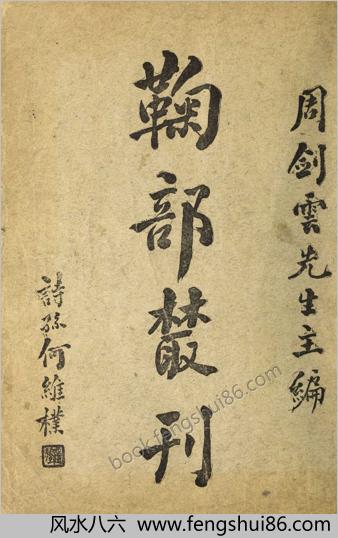 周劍雲先生主編
鞠部叢刊
詩孫何維樸
book.fengshui86.com
风水八六 www.fengshui86.com